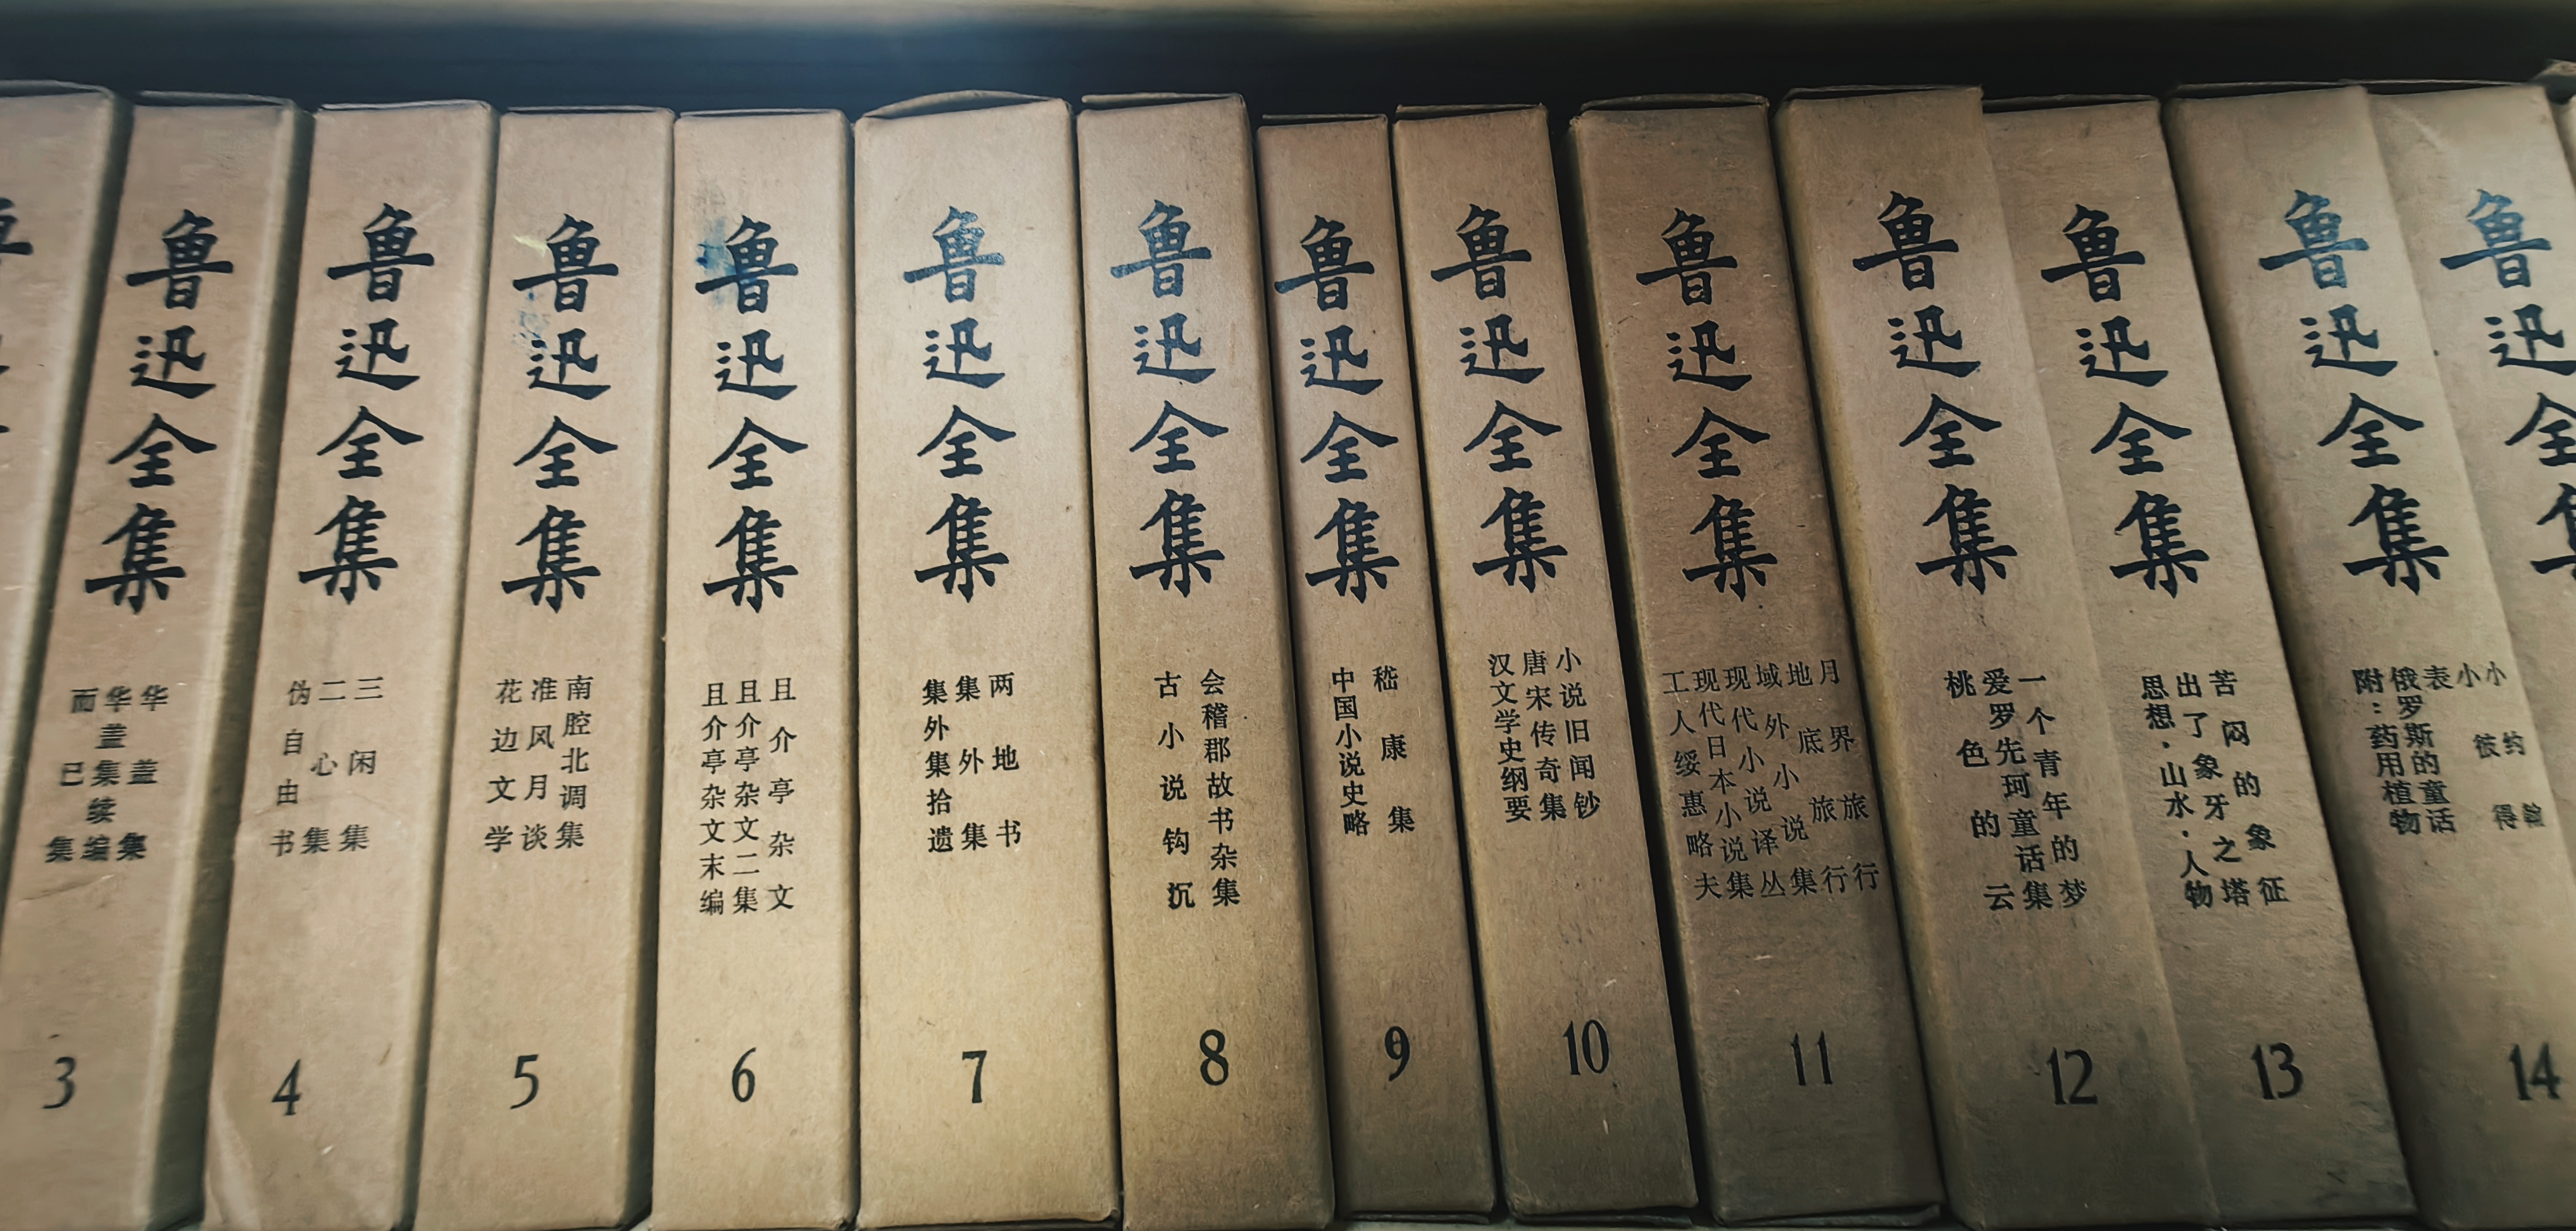 鲁迅全集
华盖集
华盖集续编
而已集
3
鲁迅全集
三闲集
二心集
伪自由书
4
鲁迅全集
南腔北调集
准风月谈
花边文学
5
鲁迅全集
且介亭杂文
且介亭杂文二集
且介亭杂文末编
6
鲁迅全集
两地书
集外集
集外集拾遗
7
鲁迅全集
会稽郡故书杂集
古小说钩沉
8
鲁迅全集
嵇康集
中国小说史略
9
鲁迅全集
小说旧闻钞
唐宋传奇集
汉文学史纲要
10
鲁迅全集
月界旅行
地底旅行
域外小说集
现代小说译丛
现代日本小说集
工人绥惠略夫
11
鲁迅全集
一个青年的梦
爱罗先珂童话集
桃色的云
12
鲁迅全集
苦闷的象征
出了象牙之塔
思想·山水·人物
13
鲁迅全集
小约翰
小彼得
表
俄罗斯的童话
附：药用植物
14
鲁迅全